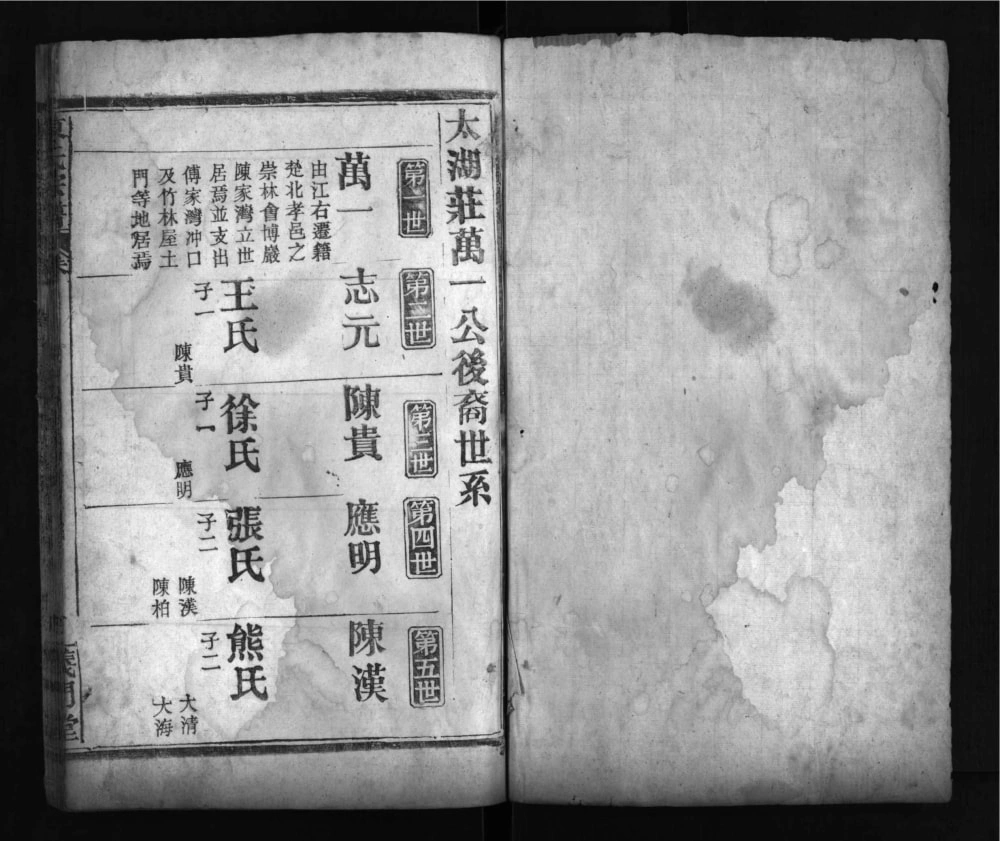 太湖莊萬一公後裔世系
第一世
萬一
由江右遷籍
楚北孝邑之
崇林會博嚴
陳家灣立世
居焉並支出
傅家灣冲口
及竹林屋土
門等地居焉
第二世
志元
王氏
子一
陳貴
第三世
陳貴
徐氏
子一
應明
第四世
應明
張氏
子二
陳漢
陳柏
第五世
陳漢
熊氏
子二
大清
大海
義門堂